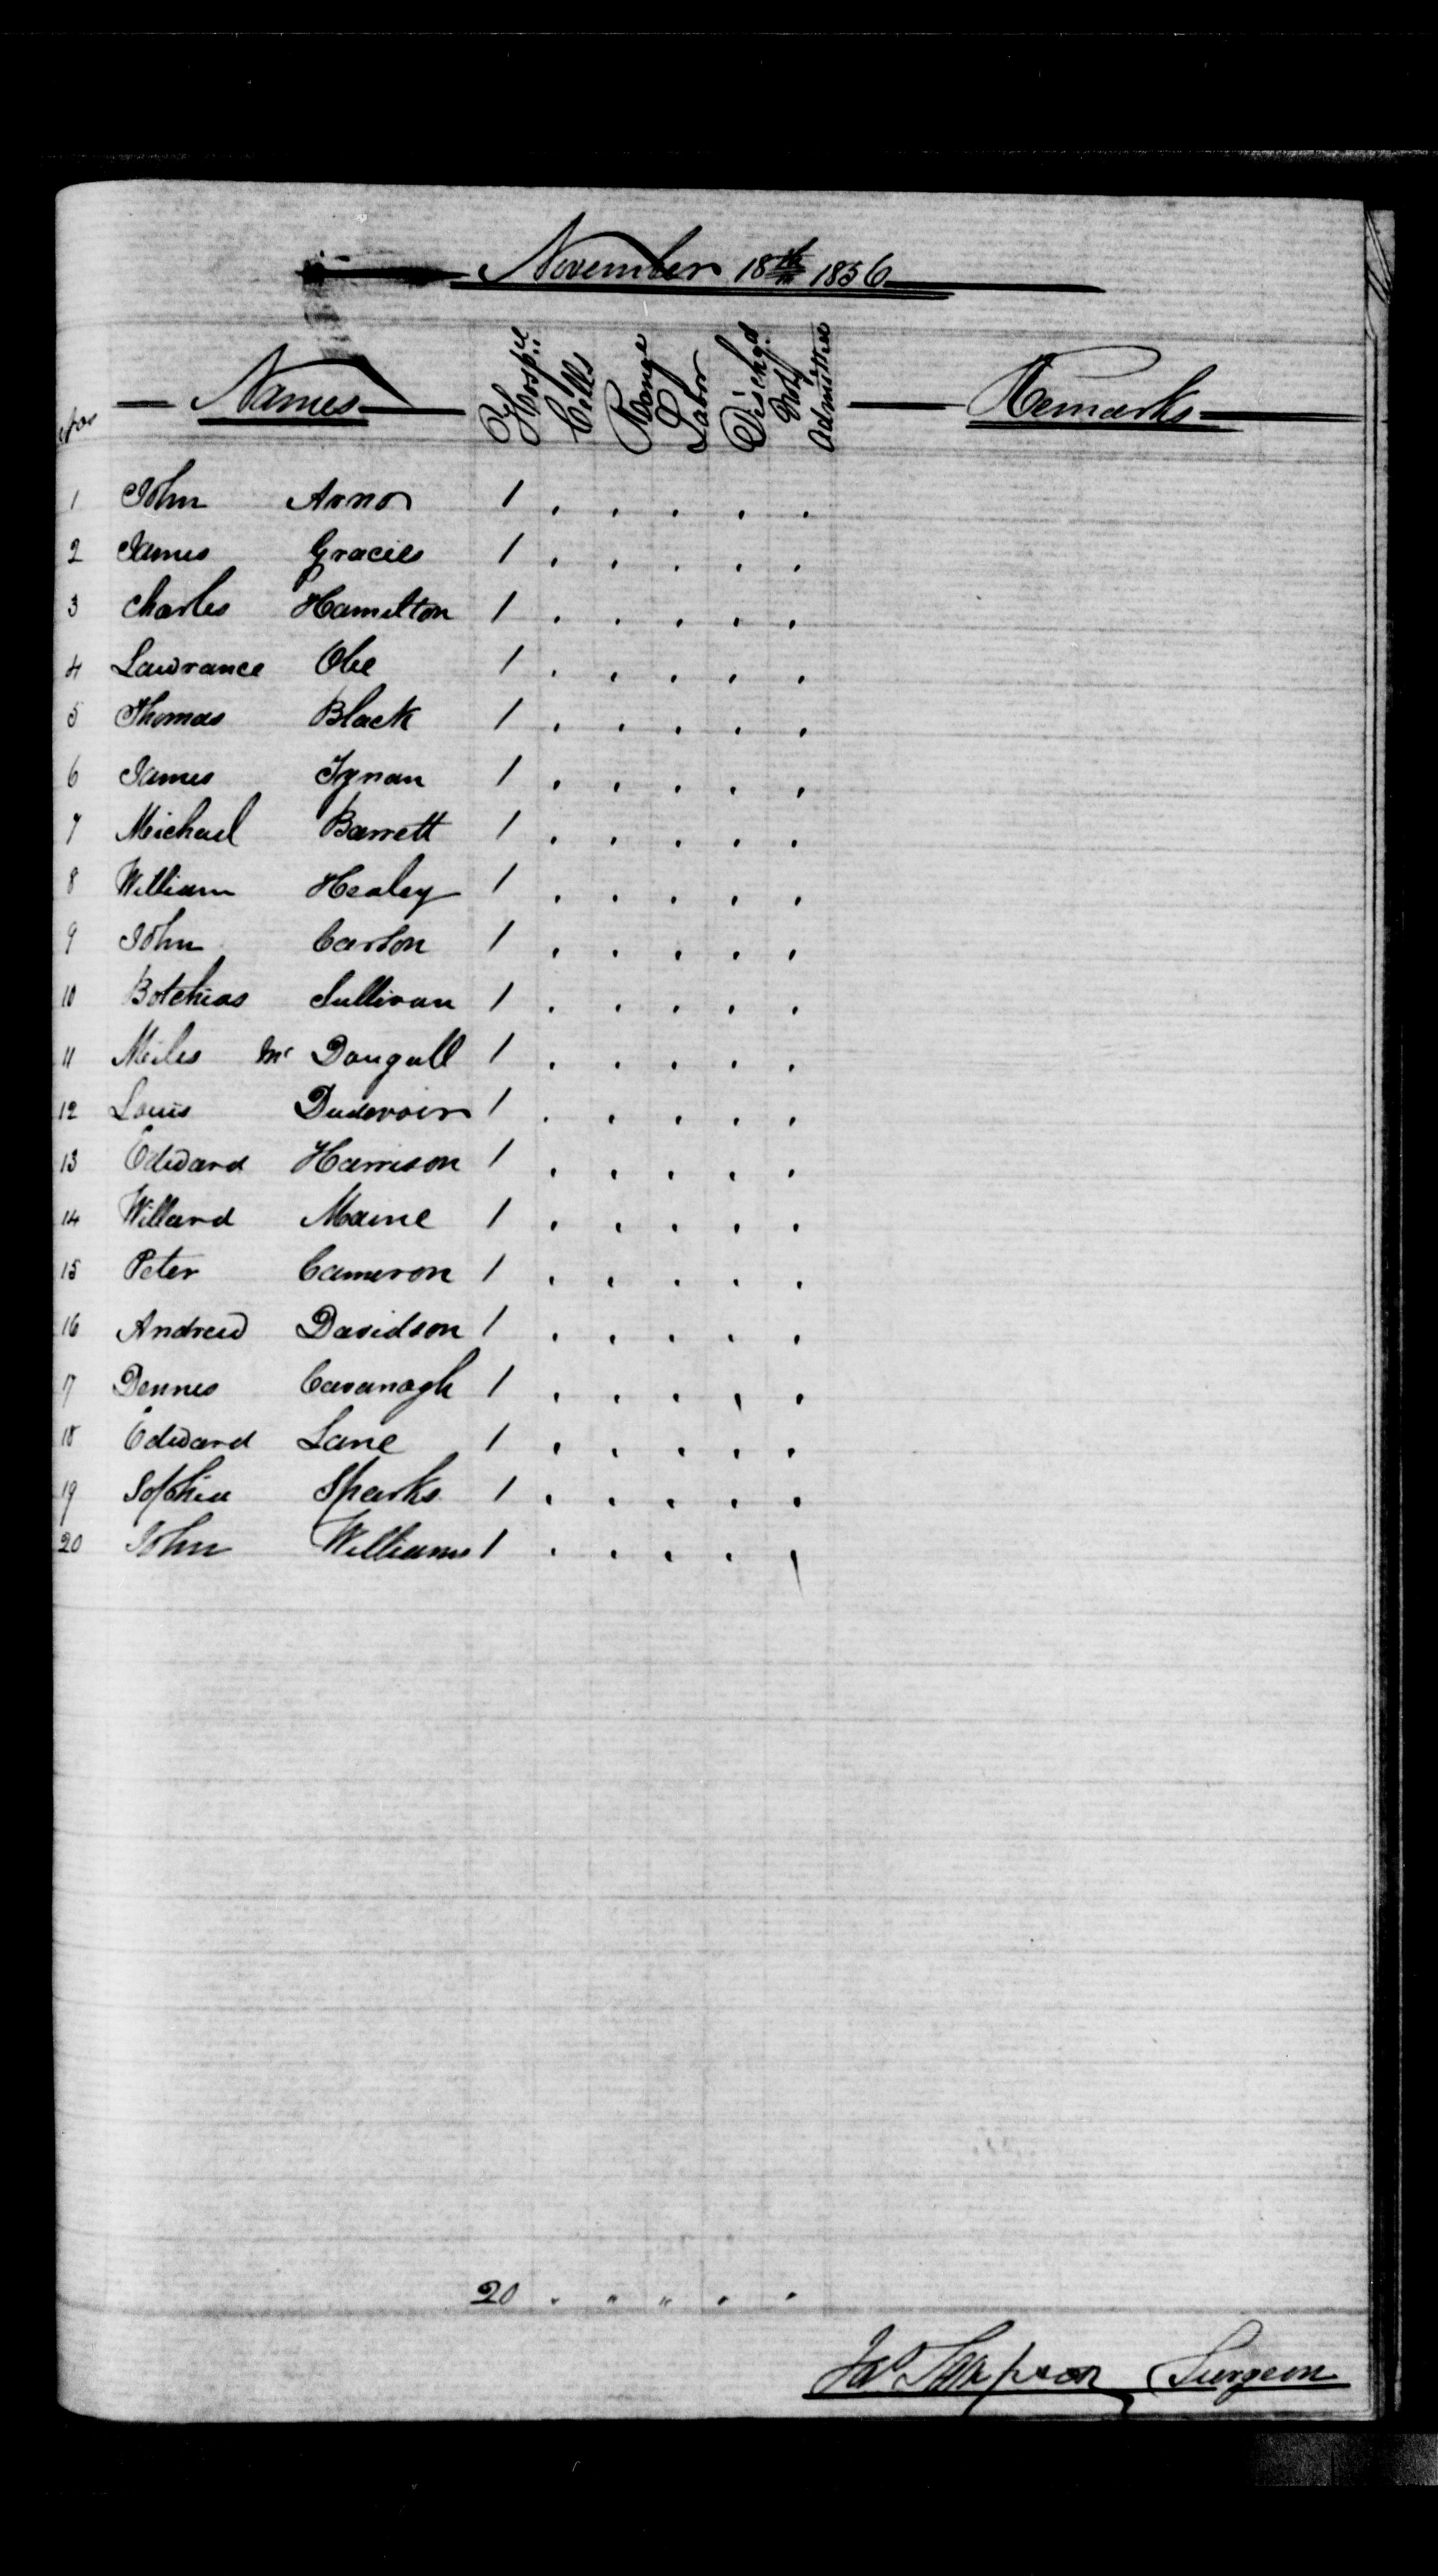 November 18th 1856
No Names Hospil Cells Range Labor Dischgd Not Admitted Remarks
1 John Arno 1 . . . . .
2 James Gracies 1 . . . . .
3 Charles Hamilton 1 . . . . .
4 Lawrance Obe 1 . . . . .
5 Thomas Black 1 . . . . .
6 James Tynan 1 . . . . .
7 Michael Barrett 1 . . . . .
8 William Healey 1 . . . . .
9 John Carson 1 . . . . .
10 Sullivan 1 . . . . .
11 Miles Mc Dougall 1 . . . . .
12 Louis Dudevoir 1 . . . . .
13 Edward Harrison 1 . . . . .
14 Willard Maine 1 . . . . .
15 Peter Cameron 1 . . . . .
16 Andrew Davidson 1 . . . . .
17 Dennis Cavanagh 1 . . . . .
18 Edward Lane 1 . . . . .
19 Sophia Sparks 1 . . . . .
20 John Williams 1 . . . . .
20 . " " . "
Jas Sampson Surgeon